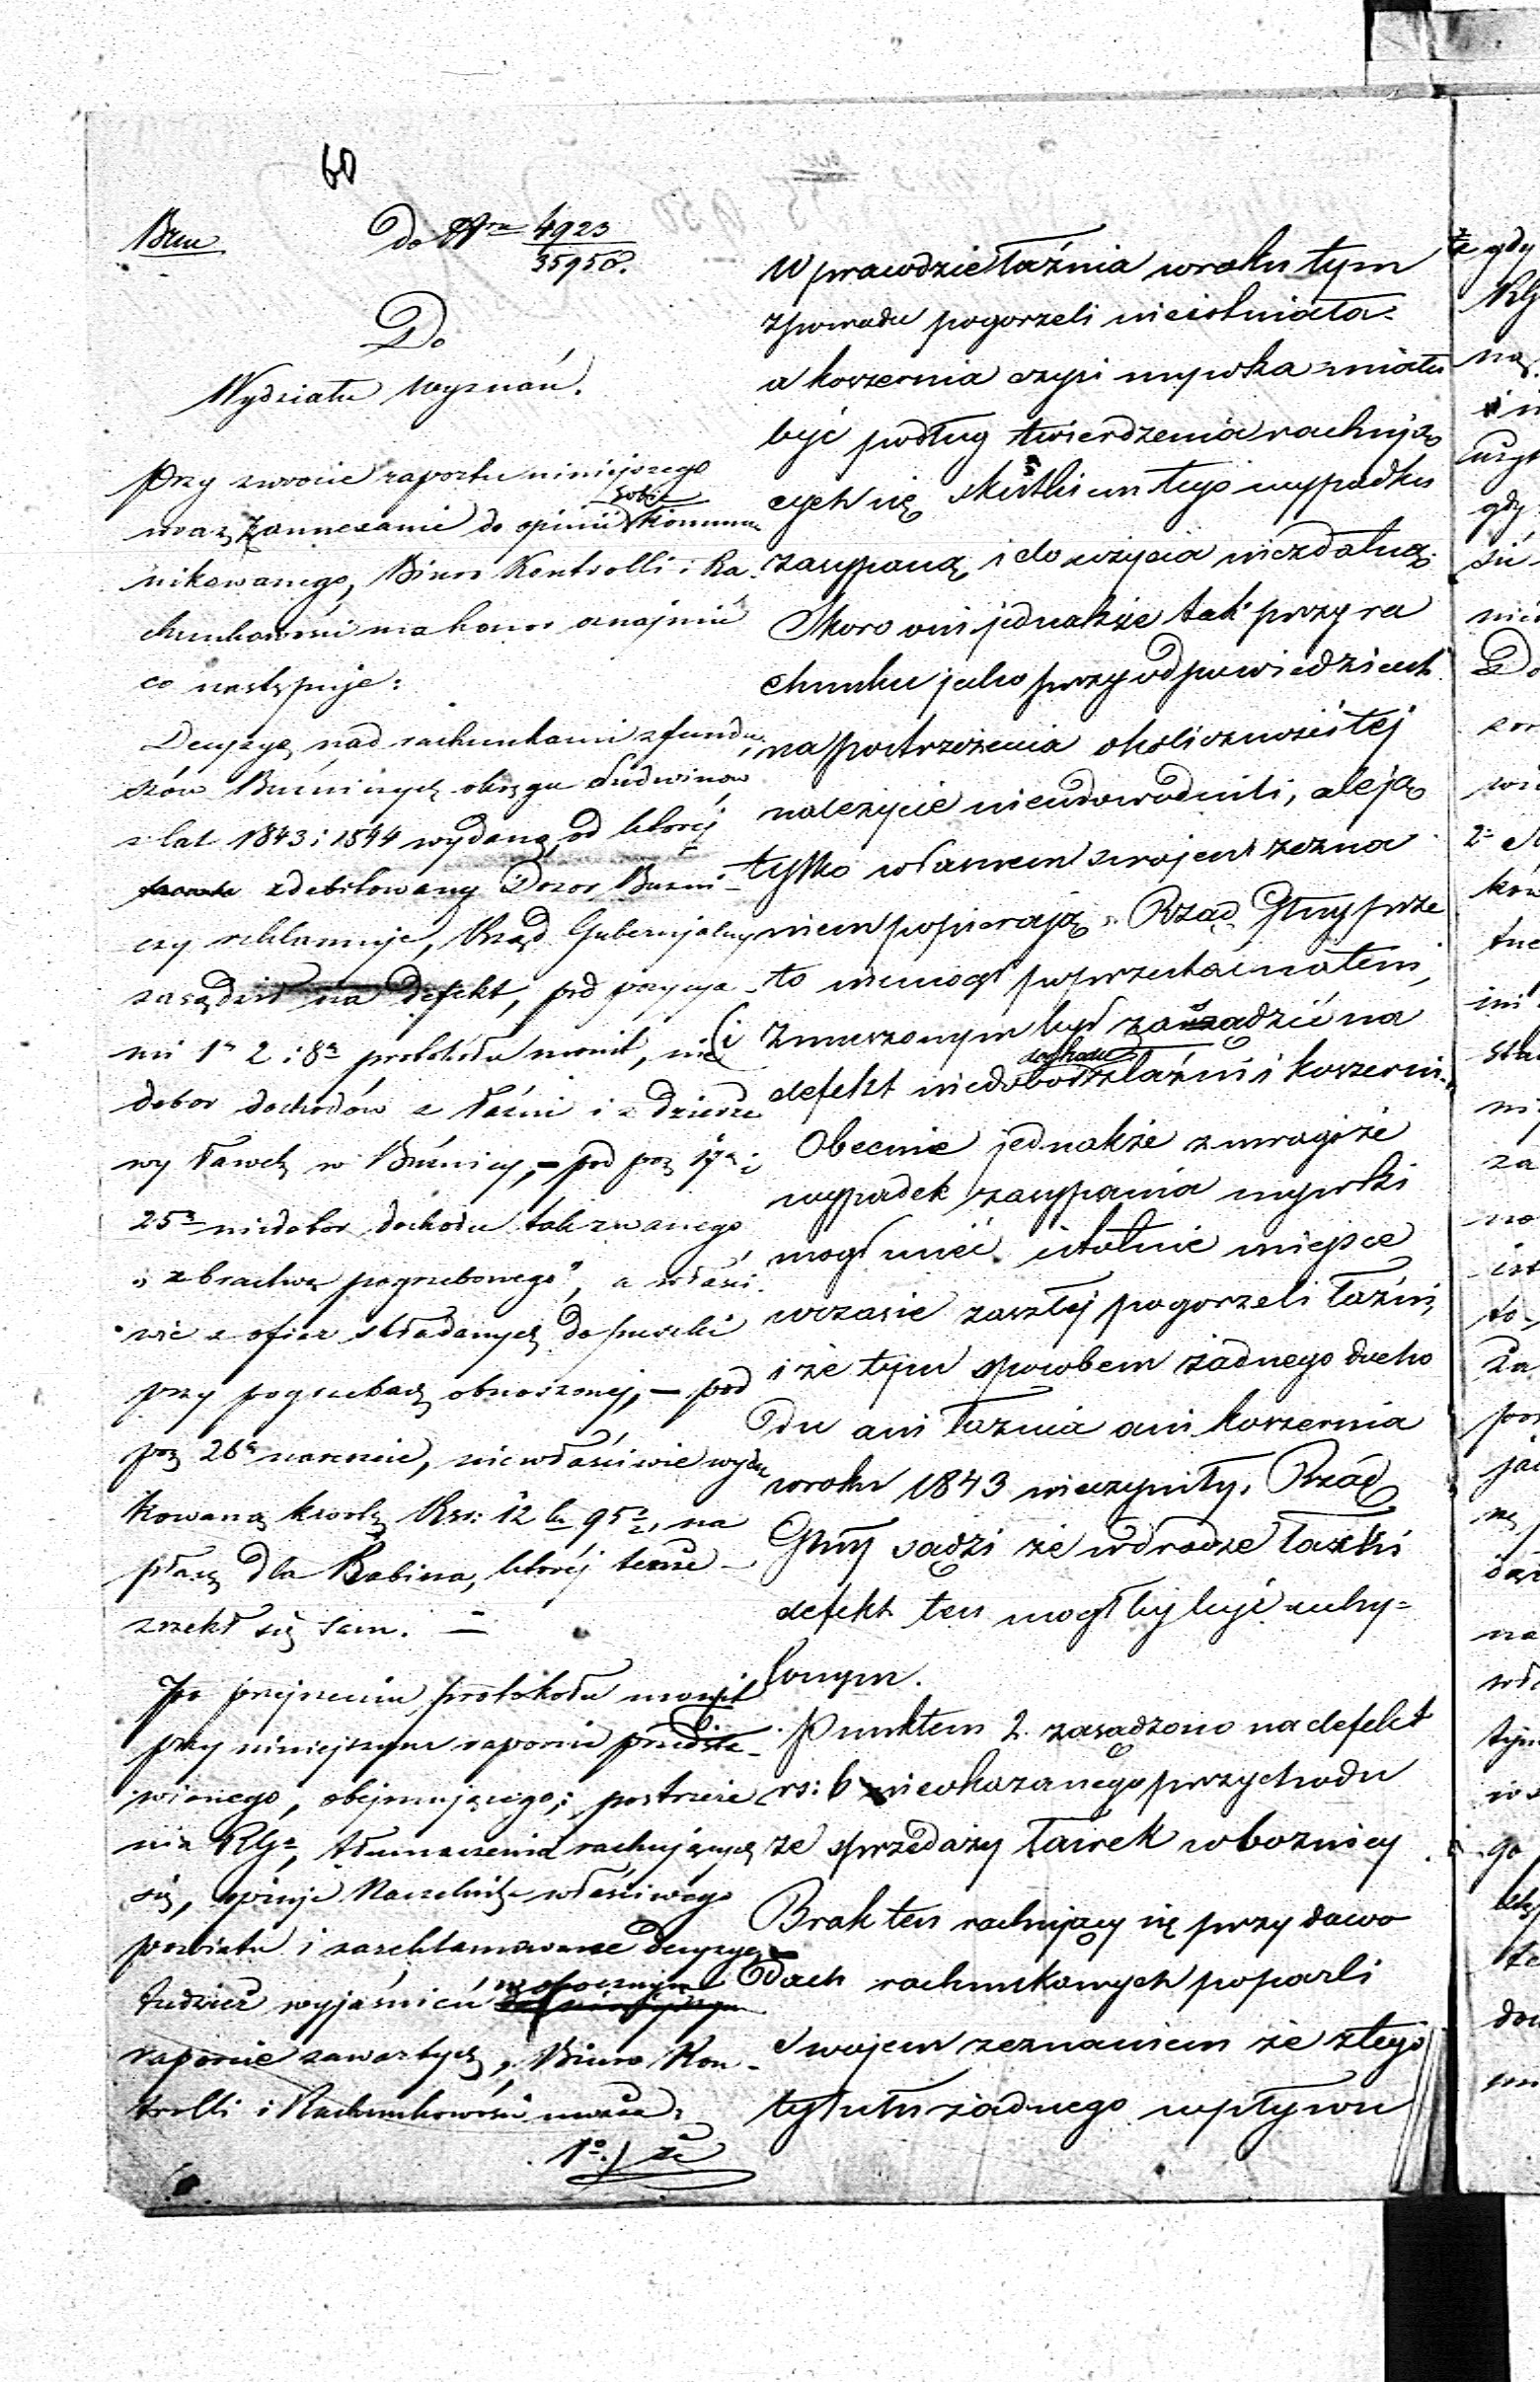 60
BKu
Do Nru 4923
35950.
Do
Wydziału Wyznań.
Przy zwrocie raportu niniejszego
wraz z annexami do opinii sobie kommu
nikowanego, Biuro Kontrolli i Ra
chunkowości ma honor oznajmić
co następuje:
Decyzyą nad rachunkami z fundu
szów Bużniczych okręgu Ludwinów
z lat 1843 i 1844 wydaną, od której
zdebitowany Dozor Bużni-
czy reklamuje, Rząd Gubernjalny
zasądził na defekt, pod pozycya-
mi 1a 2 i 8a protokołu monit, nie
dobor dochodów z łaźni i z dzierża
wy ławek w Bużnicy, - pod poz 17a i
25a niedobor dochodu tak zwanego
"z bractwa pogrzebowego", a właści
wie z ofiar składanych do puszki
przy pogrzebach obnoszonej, - pod
poz 26a nareszcie, niewłaściwie wyda
tkowaną kwotę Rsr: 12 k 95½, na
płacę dla Rabina, której tenże
zrzekł się sam. -
Po przejrzeniu protokołu monit
przy niniejszym raporcie przedsta-
wionego, obejmującego; postrzeże
nia RGo, tłumaczenia rachujących
się, opinje Naczelnika właściwego
powiatu i zareklamowane decyzye,
tudzież wyjaśnień w obocznym
raporcie zawartych, Biuro Kon-
trolli i Rachunkowości uważa:
1o.) że
W prawdzie łaźnia w roku tym
z powodu pogorzeli nieistniała
a koszernia czyli mywka miała
być podług twierdzenia rachują
cych się skutkiem tego wypadku
zasypaną i do użycia niezdatną.
Skoro oni jednakże tak przy ra
chunku jako przy odpowiedziach
na postrzeżenia okoliczności tej
należycie nieudowodnili, ale ją
tylko własnem swojem zezna
niem popierają. Rząd Gbny prze
to niemógł poprzestać na tem,
i zmuszonym był zasądzić na
defekt niedobor dochodu z łaźni i koszerni.
Obecnie jednakże z uwagi że
wypadek zasypania mywki
mógł mieć istotnie miejsce
w czasie zaszłej pogorzeli łaźni,
i że tym sposobem żadnego docho
du ani łaźnia ani koszernia
w roku 1843 nieczyniły, Rząd
Gbny sądzi że w drodze łaski
defekt ten mógłby być uchy=
lonym.
Punktem 2. zasądzono na defekt
rs: 6 nieokazanego przychodu
ze sprzedaży ławek w bożnicy
Brak ten rachujący się przy dowo
dach rachunkowych poparli
swojem zeznaniem że z tego
tytułu żadnego wpływu
że gdy
na
gdy
się
Do
2-
za
no
to
za
na
go